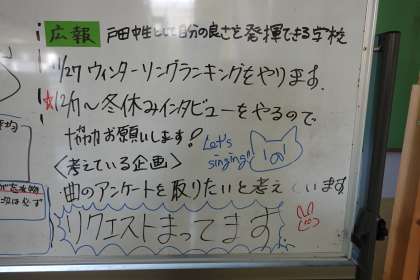 広報 戸田中生として自分の良さを発揮できる学校
1/27 ウィンターソングランキングをやります。
☆12/1〜冬休みインタビューをやるので
協力お願いします!
Let's singing!
<考えている企画>
曲のアンケートを取りたいと考えています
リクエストまってます